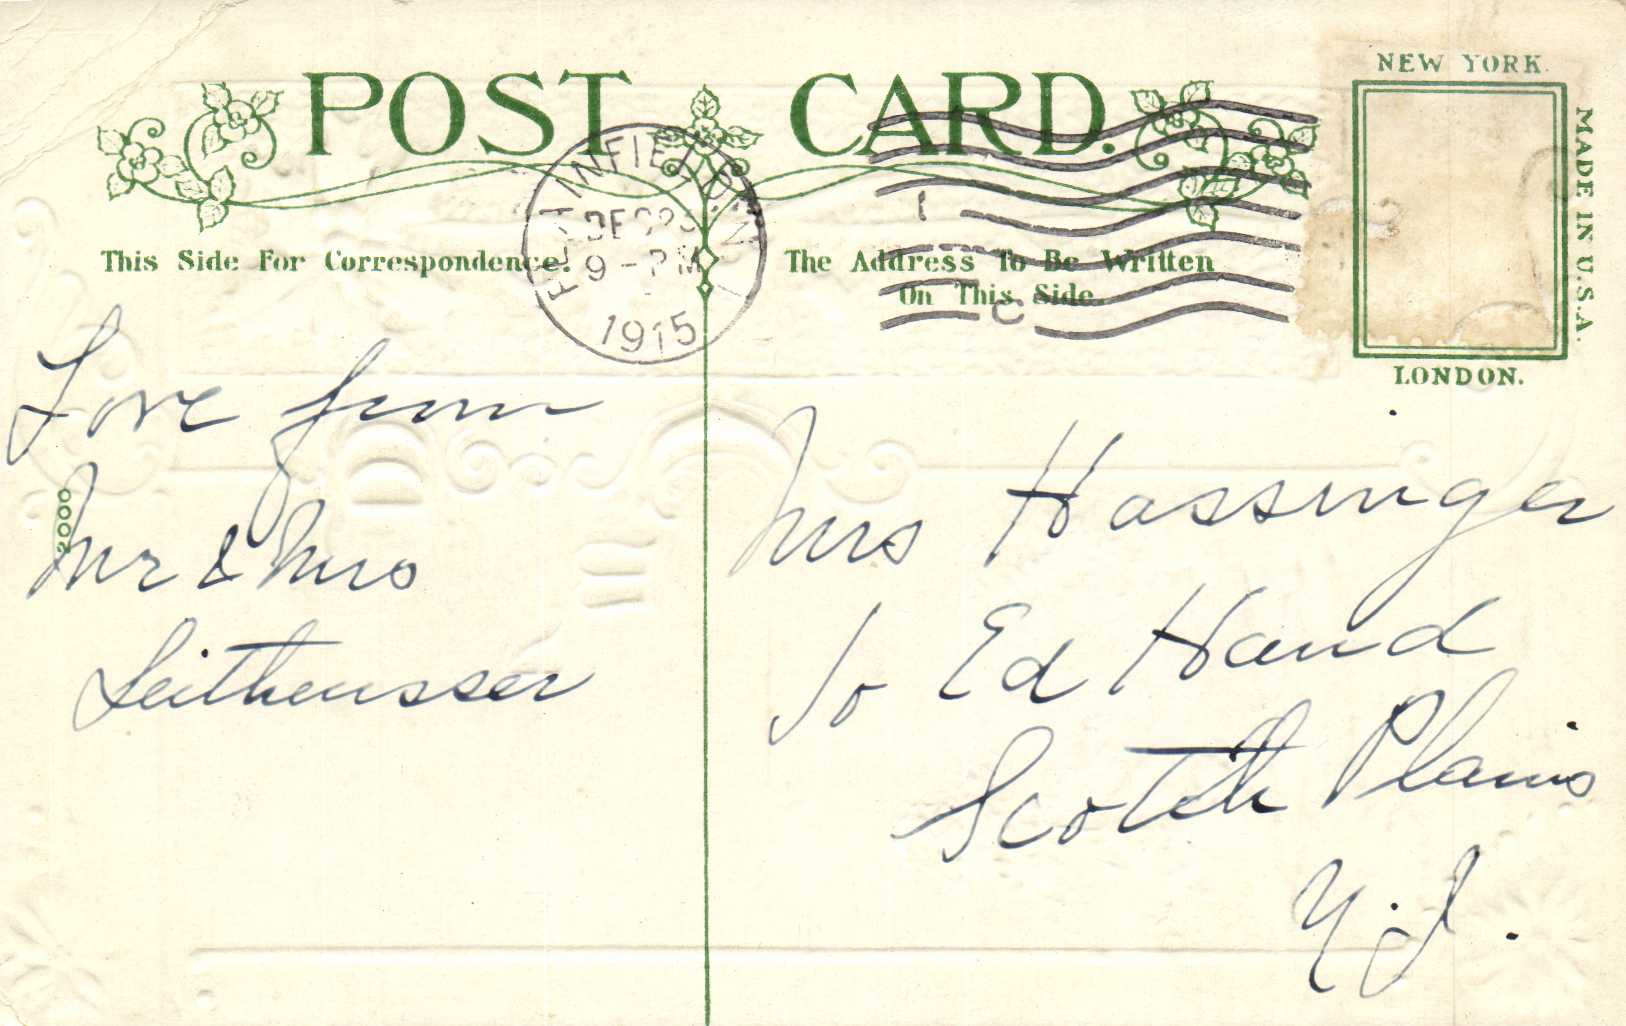 POST CARD.
NEW YORK.
MADE IN U.S.A.
LONDON.
PLAINFIELD, N.J.
DEC
9 - PM
1915
This Side For Correspondence.
The Address To Be Written
On This Side.
2000
Love from
Mr & Mrs
Leitheusser
Mrs Hassinger
To Ed Hand
Scotch Plains
N.J.